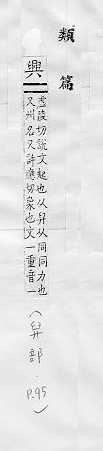 類篇
興
虛陵切說文起也从舁从同同力也
又州名又許應切象也文一重音一
(舁部 P.95)